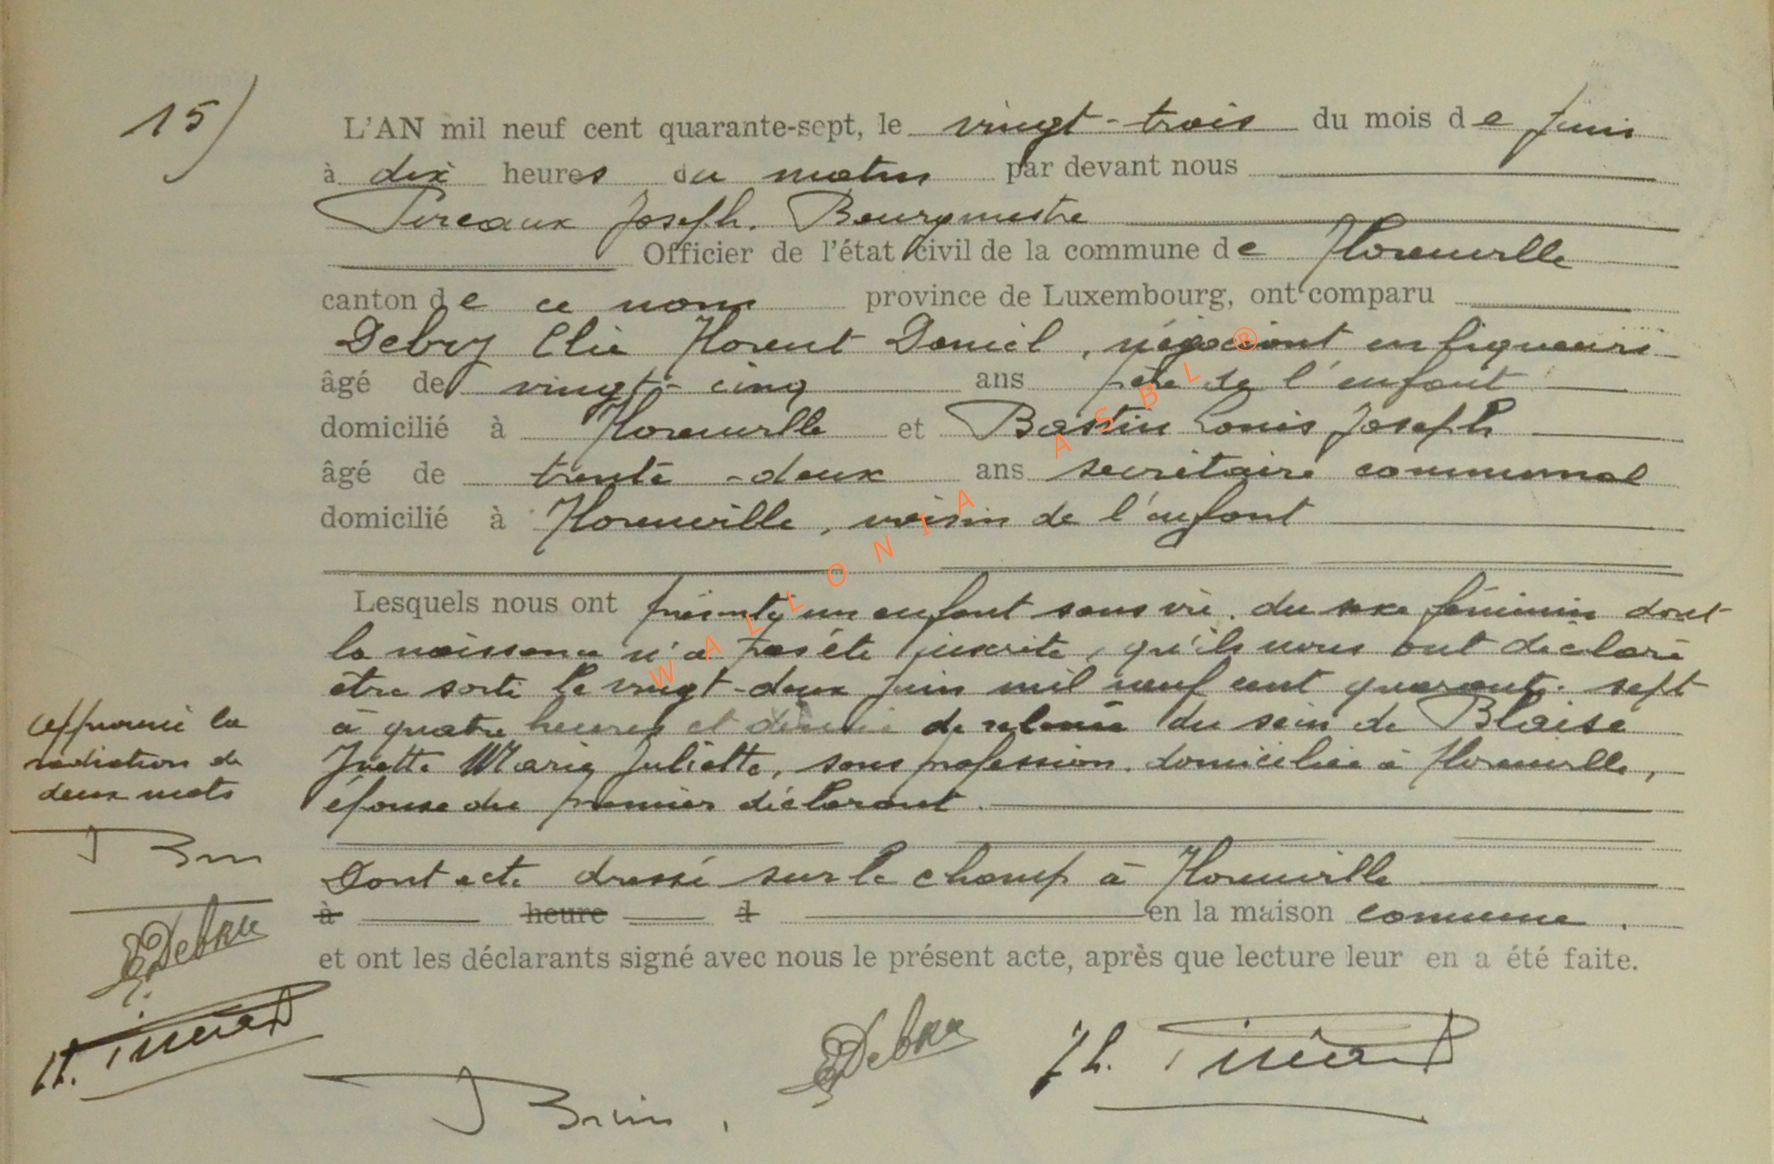 15)
L'AN mil neuf cent quarante-sept, le vingt-trois du mois de juin
à dix heures du matin par devant nous
Joseph, Bourgmestre
Officier de l'état civil de la commune de Florenville
canton de ce nom province de Luxembourg, ont comparu
Debry Elie Florent Daniel, négociant en
âgé de vingt-cinq ans père de l'enfant
domicilié à Florenville et Bastin Louis Joseph
âgé de trente-deux ans secrétaire communal
domicilié à Florenville, voisin de l'enfant
Lesquels nous ont présenté un enfant sans vie, du sexe féminin dont
la naissance n'a pas été inscrite, qu'ils nous ont déclaré
être sorti le vingt-deux juin mil neuf cent quarante-sept
à quatre heures et demie de relevée du sein de Blaise
Yvette Marie Juliette, sans profession, domiciliée à Florenville,
épouse du premier déclarant.
Approuvé la
radiation de
deux mots
Dont acte dressé sur le champ à Florenville
à heure d en la maison commune.
et ont les déclarants signé avec nous le présent acte, après que lecture leur en a été faite.
WALLONIA ASBL ®